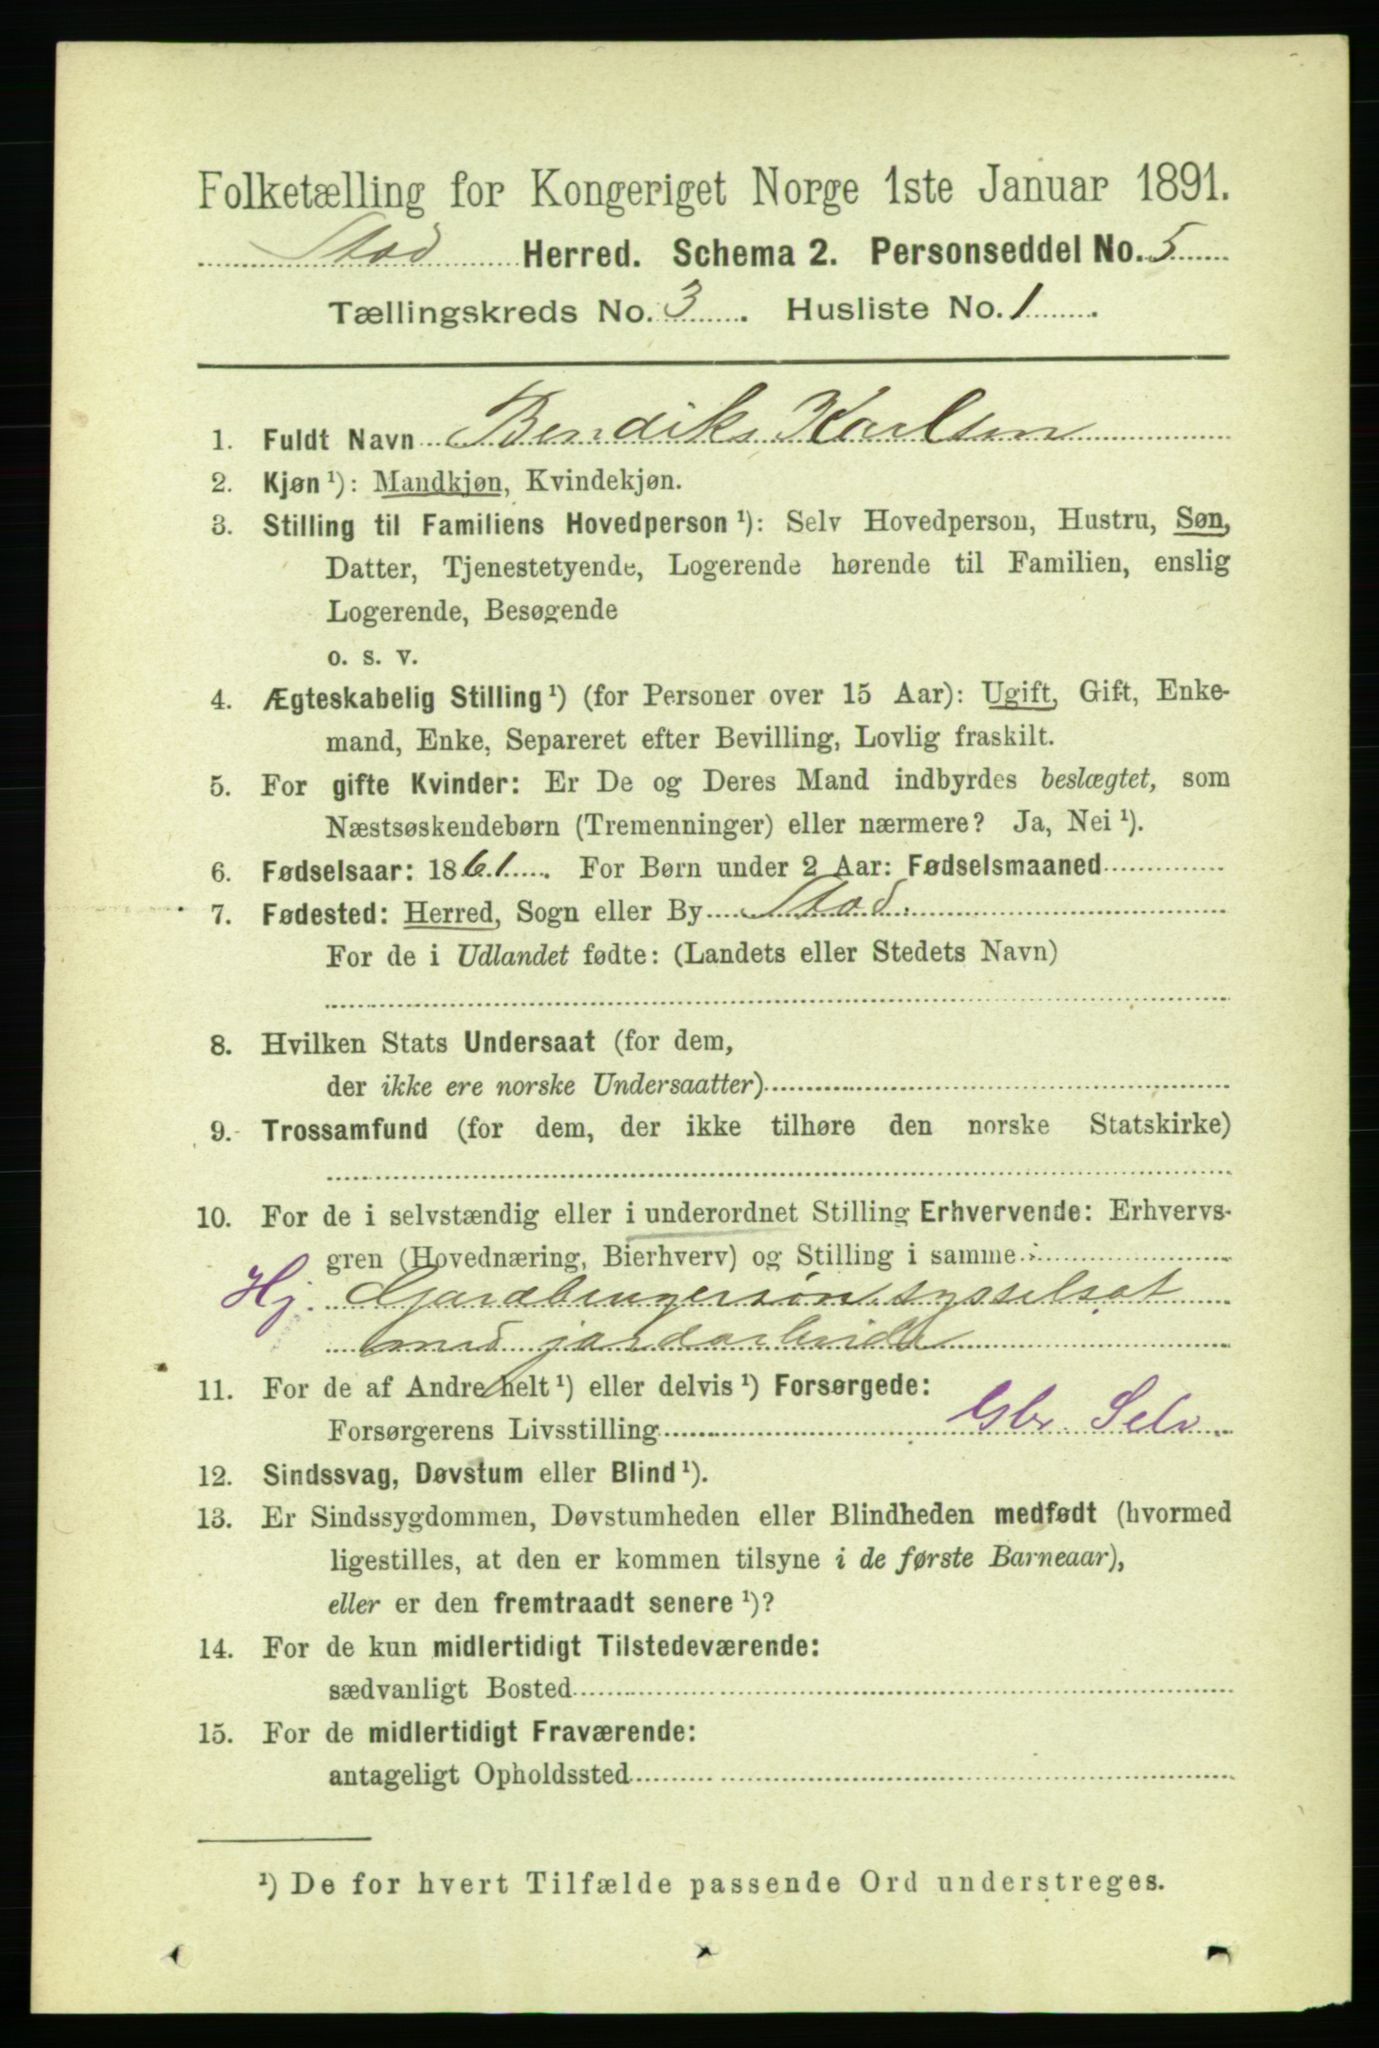 Folketælling for Kongeriget Norge 1ste Januar 1891.
Stod Herred. Schema 2. Personseddel No. 5
Tællingskreds No. 3. Husliste No. 1.
1. Fuldt Navn Bendiks Karlsen
2. Kjøn ¹): Mandkjøn, Kvindekjøn.
3. Stilling til Familiens Hovedperson ¹): Selv Hovedperson, Hustru, Søn,
Datter, Tjenestetyende, Logerende hørende til Familien, enslig
Logerende, Besøgende
o. s. v.
4. Ægteskabelig Stilling ¹) (for Personer over 15 Aar): Ugift, Gift, Enke-
mand, Enke, Separeret efter Bevilling, Lovlig fraskilt.
5. For gifte Kvinder: Er De og Deres Mand indbyrdes beslægtet, som
Næstsøskendebørn (Tremenninger) eller nærmere? Ja, Nei ¹).
6. Fødselsaar: 1861. For Børn under 2 Aar: Fødselsmaaned
7. Fødested: Herred, Sogn eller By Stod.
For de i Udlandet fødte: (Landets eller Stedets Navn)
8. Hvilken Stats Undersaat (for dem,
der ikke ere norske Undersaatter)
9. Trossamfund (for dem, der ikke tilhøre den norske Statskirke)
10. For de i selvstændig eller i underordnet Stilling Erhvervende: Erhvervs-
gren (Hovednæring, Bierhverv) og Stilling i samme :
Hj. Gardbrugersøn sysselsat
med jordarbeide
11. For de af Andre helt ¹) eller delvis ¹) Forsørgede:
Forsørgerens Livsstilling Gbr. Selv.
12. Sindssvag, Døvstum eller Blind ¹).
13. Er Sindssygdommen, Døvstumheden eller Blindheden medfødt (hvormed
ligestilles, at den er kommen tilsyne i de første Barneaar),
eller er den fremtraadt senere ¹)?
14. For de kun midlertidigt Tilstedeværende:
sædvanligt Bosted
15. For de midlertidigt Fraværende:
antageligt Opholdssted
¹) De for hvert Tilfælde passende Ord understreges.